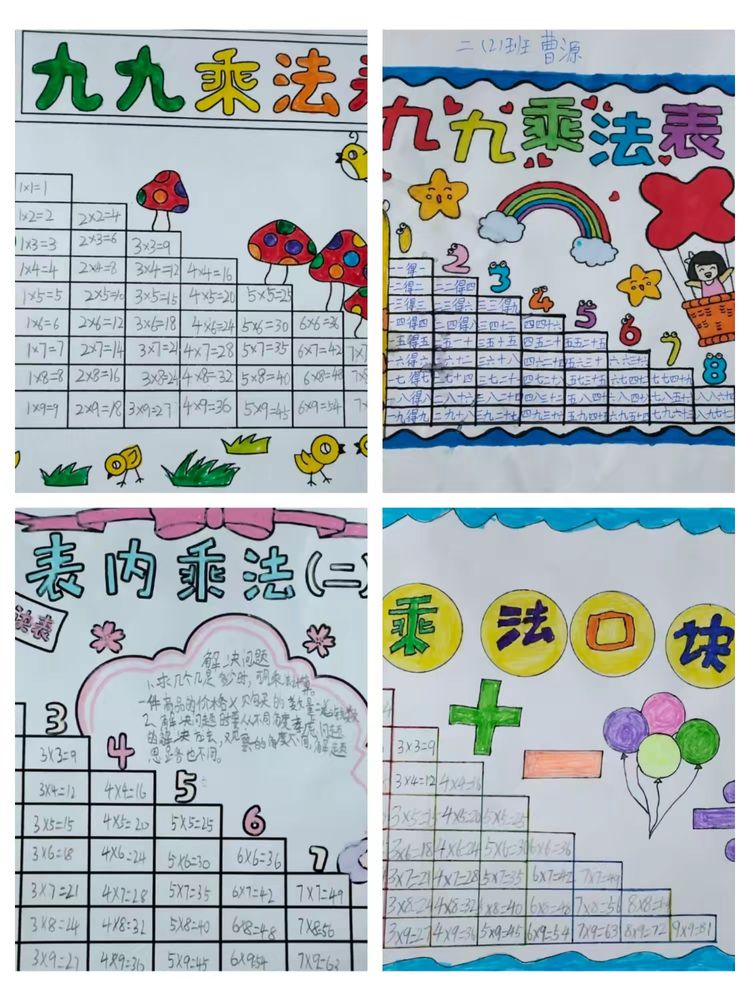 九九乘法
1×1=1
1×2=2 2×2=4
1×3=3 2×3=6 3×3=9
1×4=4 2×4=8 3×4=12 4×4=16
1×5=5 2×5=10 3×5=15 4×5=20 5×5=25
1×6=6 2×6=12 3×6=18 4×6=24 5×6=30 6×6=36
1×7=7 2×7=14 3×7=21 4×7=28 5×7=35 6×7=42
1×8=8 2×8=16 3×8=24 4×8=32 5×8=40 6×8=48
1×9=9 2×9=18 3×9=27 4×9=36 5×9=45 6×9=54
二(2)班 曹源
九九乘法表
2
3
4
5
6
7
8
一得一
一二得二 二二得四
一三得三 二三得六 三三得九
一四得四 二四得八 三四十二 四四十六
一五得五 二五一十 三五十五 四五二十 五五二十五
一六得六 二六十二 三六十八 四六二十四 五六三十 六六三十六
一七得七 二七十四 三七二十一 四七二十八 五七三十五 六七四十二 七七四十九
一八得八 二八十六 三八二十四 四八三十二 五八四十 六八四十八 七八五十六 八八六十四
一九得九 二九十八 三九二十七 四九三十六 五九四十五 六九五十四 七九六十三 八九七十
表内乘法(二)
解决问题
1、求几个几是多少时,可用乘法计算。
一件商品的价格×购买的数量
2、解决问题时要从不同角度考虑问题
的解决方法,观察的角度不同,解题
思路也不同。
3
3×3=9 4
3×4=12 4×4=16 5
3×5=15 4×5=20 5×5=25 6
3×6=18 4×6=24 5×6=30 6×6=36 7
3×7=21 4×7=28 5×7=35 6×7=42 7×7=49
3×8=24 4×8=32 5×8=40 6×8=48 7×8=56
3×9=27 4×9=36 5×9=45 6×9=54 7×9=63
乘法口块
3×3=9
3×4=12 4×4=16
3×5=15 4×5=20 5×5=25
3×6=18 4×6=24 5×6=30 6×6=36
3×7=21 4×7=28 5×7=35 6×7=42 7×7=49
3×8=24 4×8=32 5×8=40 6×8=48 7×8=56 8×8=64
3×9=27 4×9=36 5×9=45 6×9=54 7×9=63 8×9=72 9×9=81